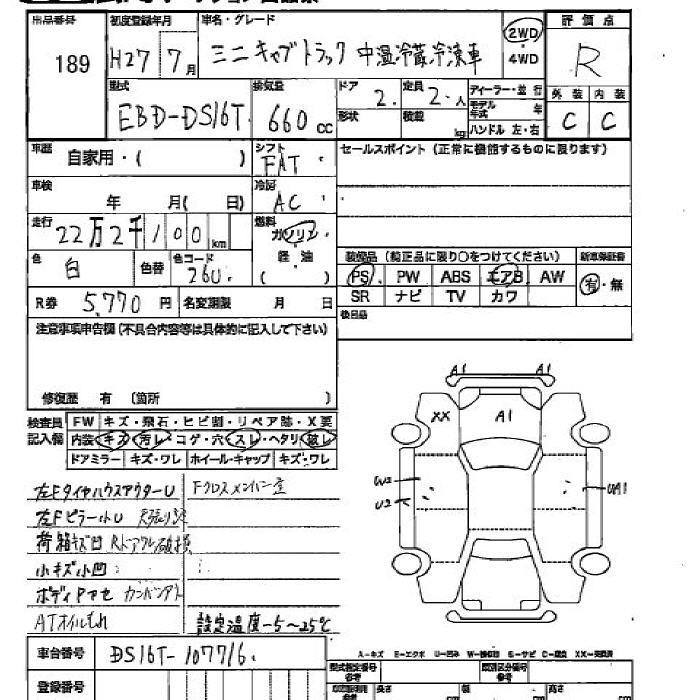 出品番号 初度登録年月 車名・グレード 2WD 評価点
189 H27 7月 ミニキャブトラック 中温冷蔵冷凍車 4WD R
型式 排気量 ドア 2. 定員 2. 人 ディーラー・並行 外装 内装
EBD-DS16T 660 cc 形状 積載 kg モデル年式 年 C C
ハンドル 左・右
車歴 自家用・( ) シフト FAT セールスポイント(正常に機能するものに限ります)
車検 年 月( 日) 冷房 AC
走行 22万2千100km 燃料 ガソリン
色 白 色替 色コード 26U 軽油 ( )
装備品(純正品に限り○をつけてください) 新車保証書
PS PW ABS エアB AW 有・無
SR ナビ TV カワ
R券 5,770円 名変期限 月 日 後日品
注意事項申告欄(不具合内容等は具体的に記入して下さい)
修復歴 有(箇所 )
検査員記入欄 FW キズ・飛石・ヒビ割・リペア跡・X要
内装 キズ・汚レ・コゲ・穴・スレ・ヘタリ・破レ
ドアミラー キズ・ワレ ホイール・キャップ キズ・ワレ
左Fタイヤハウスアウター U Fクロスメンバー
左Fピラー小U
荷箱キズ凹
小キズ小凹
ボディ
ATオイルもれ 設定温度-5～25℃
A1
XX A1
W2
U2
UA1
A1
車台番号 DS16T-107716
登録番号
A-キズ E-エクボ U-凹み W-補修跡 S-サビ C-腐食 XX-交換済
型式指定番号 参考 類別区分番号 参考
長さ cm 幅 cm 高さ cm